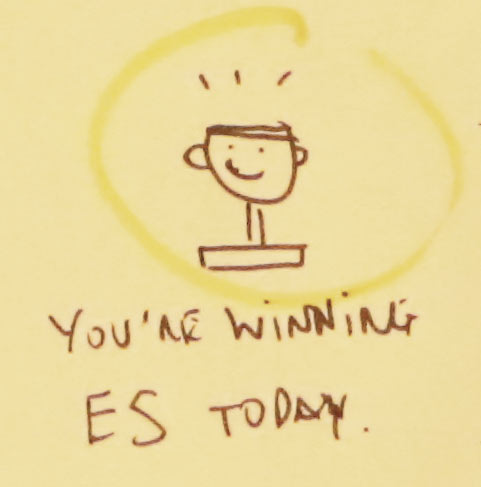 YOU'RE WINNING
ES TODAY.